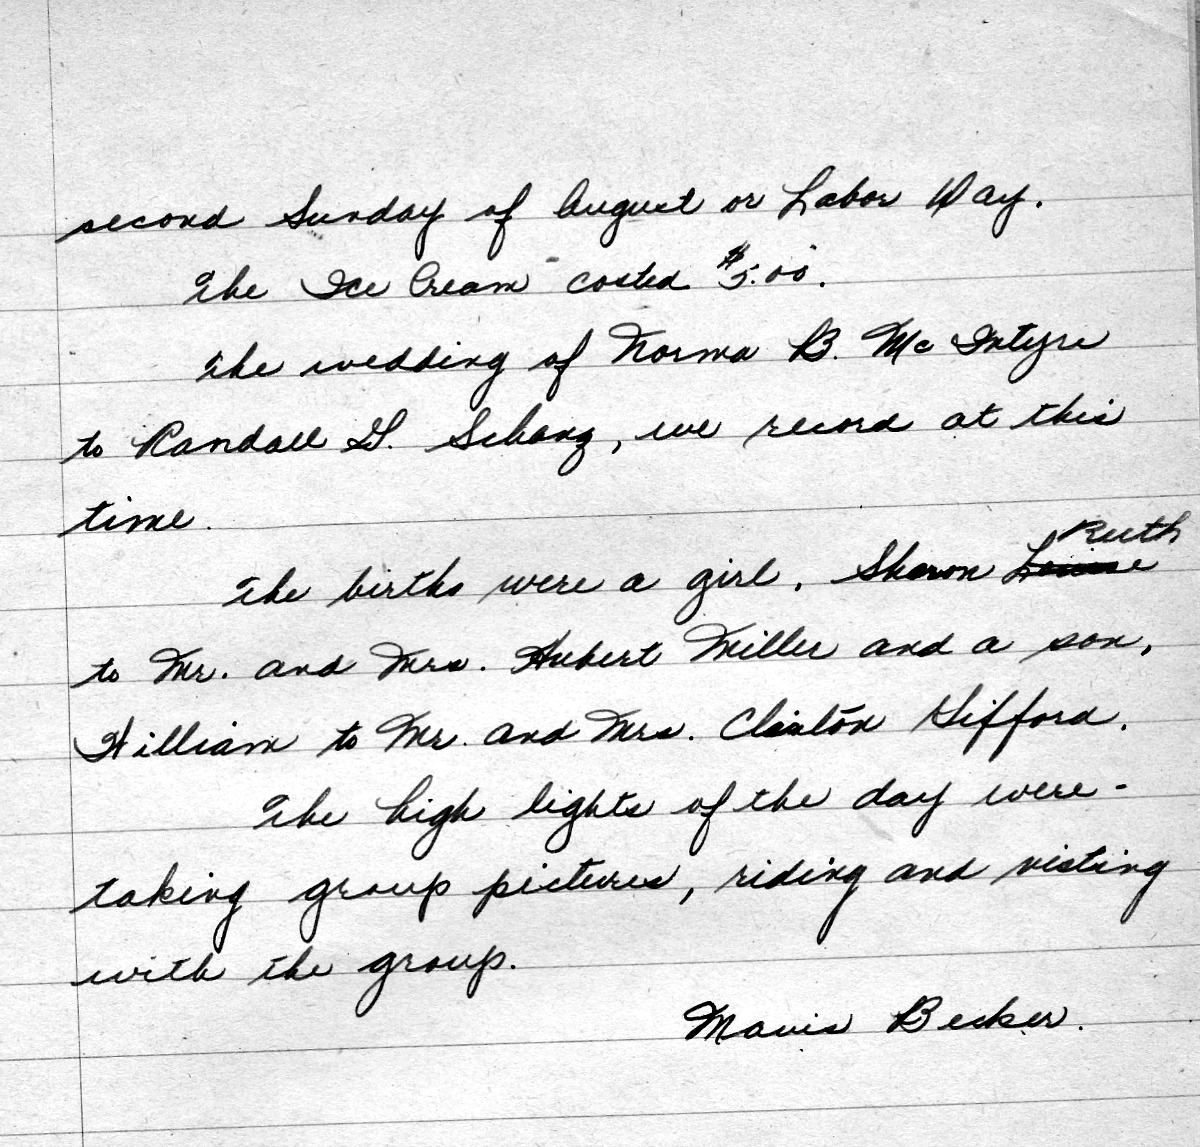 second Sunday of August or Labor Day.
The Ice Cream costed $5.00.
The wedding of Norma B. Mc Intyre
to Randall G. Schanz, we record at this
time.
The births were a girl, Sharon Ruth
to Mr. and Mrs. Hubert Miller and a son,
William to Mr. and Mrs. Clinton Gifford.
The high lights of the day were-
taking group pictures, riding and visting
with the group.
Mavis Becker.